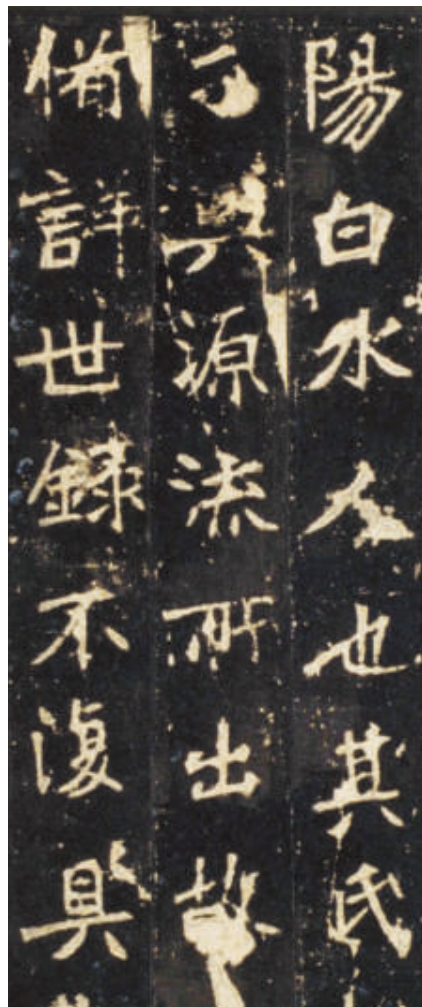 陽白水人也其氏
源流所出故
偹詳世録不復具